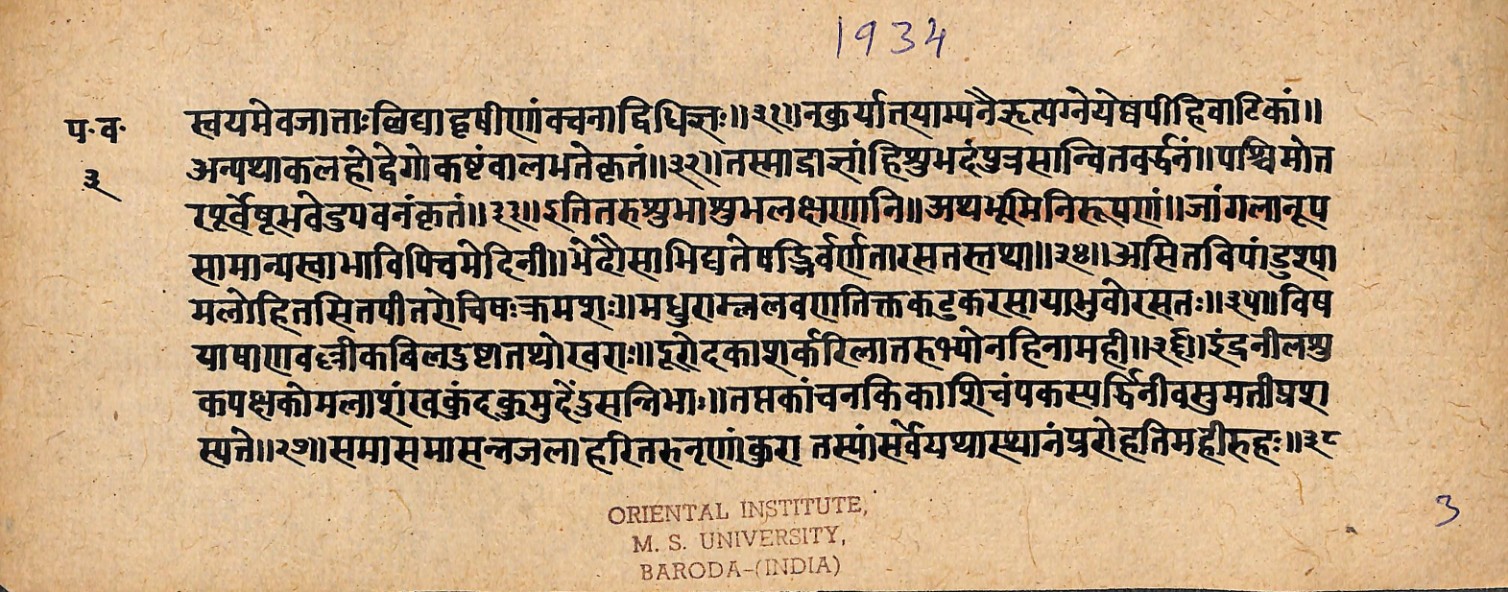 1934
प॰ व॰
३
स्वयमेवजाताःविद्याद्दृषीणांवचनाद्विधिज्ञः॥३१॥नकुर्यात्याम्यनैऋत्यग्नेयेषपीहिवाटिकां॥
अन्यथाकलहोद्वेगोकष्टंवालभतेकृतं॥३२॥तस्माद्राज्ञांहिशुभदंपुत्रसान्वितवर्द्धनं॥पश्चिमोत्त
रपूर्वेषूभवेडपवनंकृतं॥३३॥इतितरुशुभाशुभलक्षणानि॥अथभूमिनिरूपणं॥जांगलानूप
सामान्यस्वाभाविपिचमेदिनी॥भेदैःसाभिद्यतेषड्भिर्वर्णतारसतस्तथा॥३४॥असितविपांडुश्पा
मलोहितसितपीतरोचिषःक्रमशः॥मधुराम्ललवणतिक्तकटुकरसायाभुवोरसतः॥३५॥विष
याषाणवल्मीकबिलडुष्टातथोखराः॥दूरोदकाशर्करिलातरुभ्योनहिनामही॥३६॥इंद्रनीलशु
कपक्षकोमलाशंखकुंदकुमुदेंडुसन्निभाः॥तप्तकांचनकिकाशिचंपकस्पर्द्धिनीवसुमतीप्रश
स्पते॥३७॥समासमासन्नजलाहरितरुनृणांकुरा तस्यांसर्वेयथास्थानंप्ररोहतिमहीरुहः॥३८
3
ORIENTAL INSTITUTE,
M. S. UNIVERSITY,
BARODA-(INDIA)